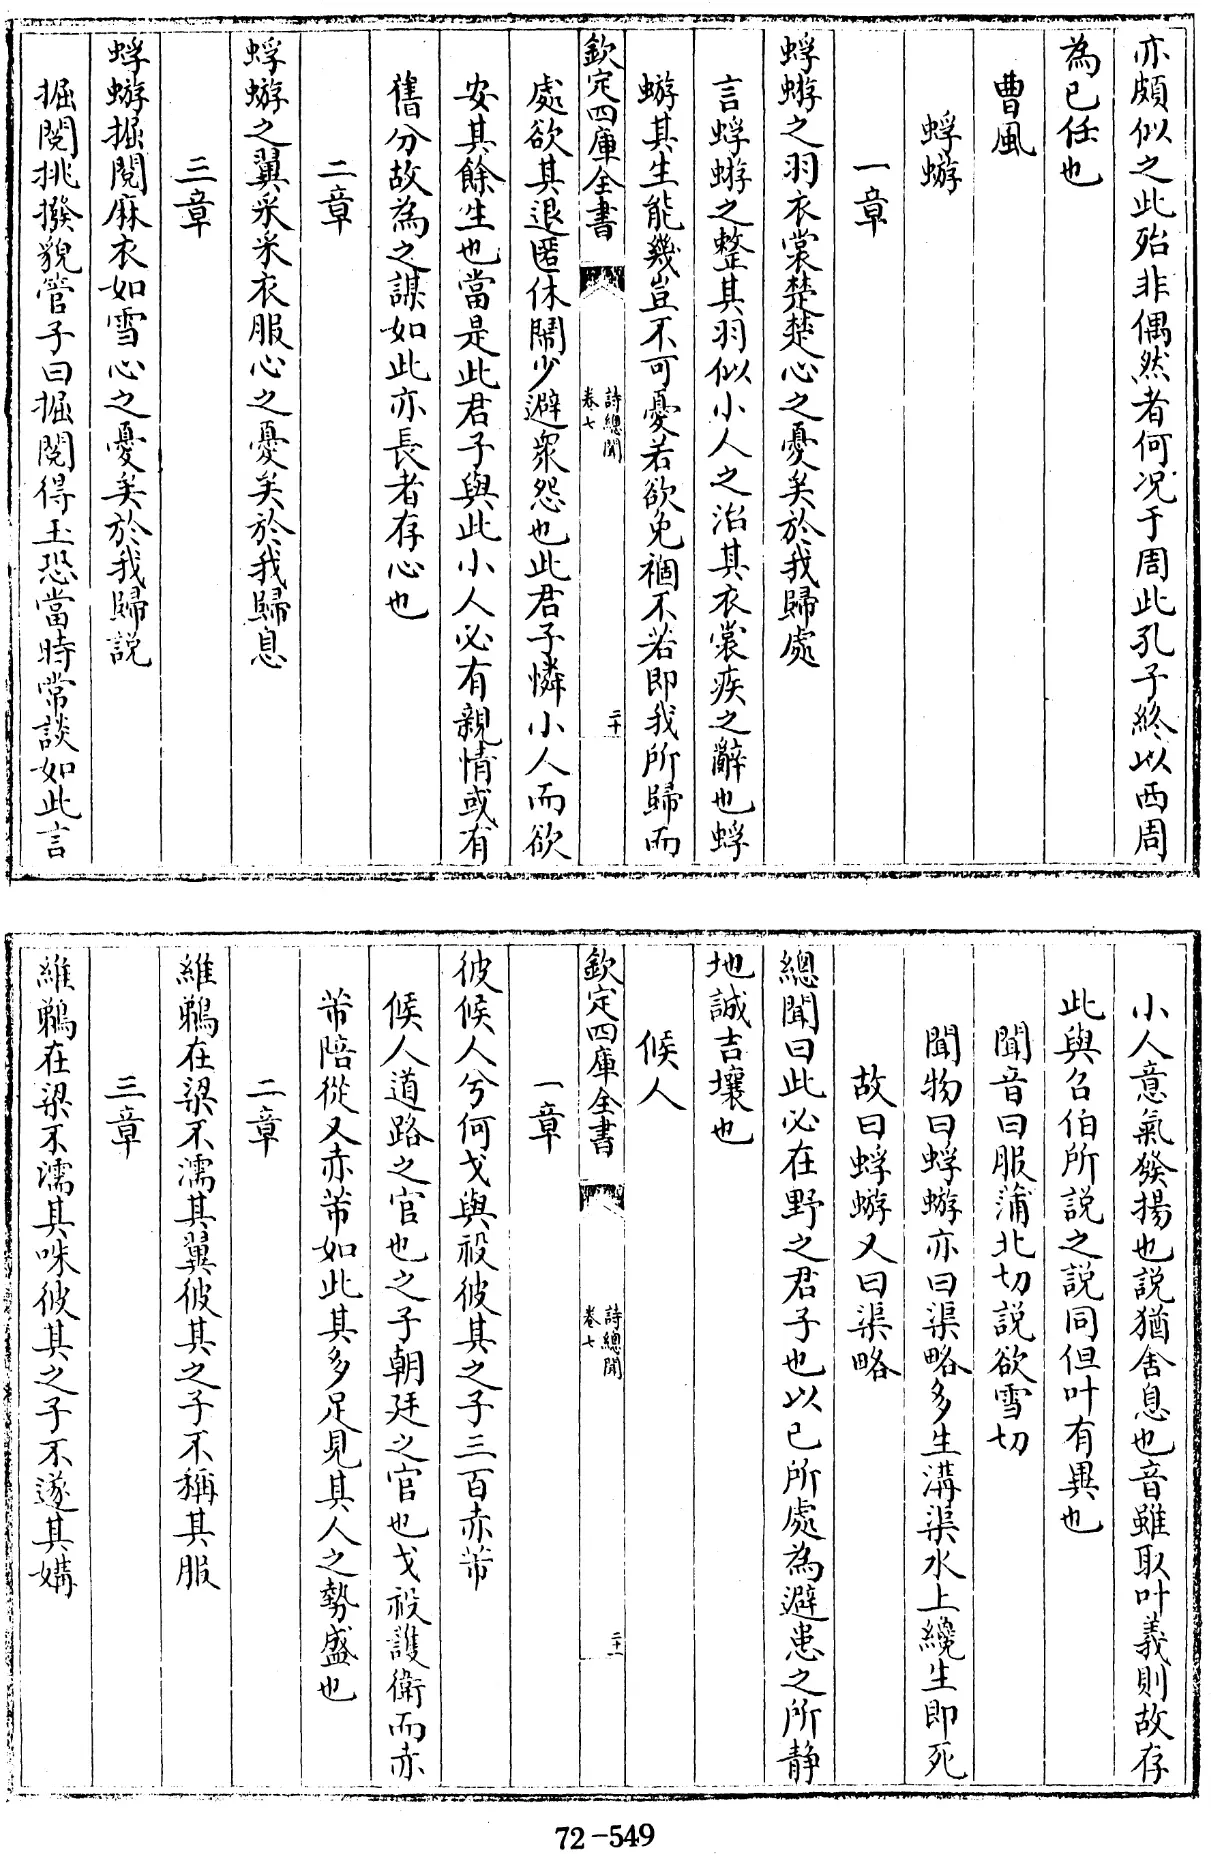 亦頗似之此殆非偶然者何况于周此孔子終以西周
為已任也
曹風
蜉蝣
一章
蜉蝣之羽衣裳楚楚心之憂矣於我歸處
言蜉蝣之整其羽似小人之治其衣裳疾之辭也蜉
蝣其生能幾豈不可憂若欲免禍不若即我所歸而
欽定四庫全書
詩總聞
卷七
二十
處欲其退匿休閒少避衆怨也此君子憐小人而欲
安其餘生也當是此君子與此小人必有親情或有
舊分故為之謀如此亦長者存心也
二章
蜉蝣之翼采采衣服心之憂矣於我歸息
三章
蜉蝣掘閱麻衣如雪心之憂矣於我歸説
掘閱挑撥貌管子曰掘閱得玉恐當時常談如此言
小人意氣發揚也説猶舍息也音雖取叶義則故存
此與召伯所説之説同但叶有異也
聞音曰服蒲北切説欲雪切
聞物曰蜉蝣亦曰渠略多生溝渠水上纔生即死
故曰蜉蝣又曰渠略
總聞曰此必在野之君子也以已所處為避患之所静
地誠吉壤也
候人
欽定四庫全書
詩總聞
卷七
二十一
一章
彼候人兮何戈與祋彼其之子三百赤芾
候人道路之官也之子朝廷之官也戈祋護衛而赤
芾陪從又赤芾如此其多足見其人之勢盛也
二章
維鵜在梁不濡其翼彼其之子不稱其服
三章
維鵜在梁不濡其咮彼其之子不遂其媾
72-549